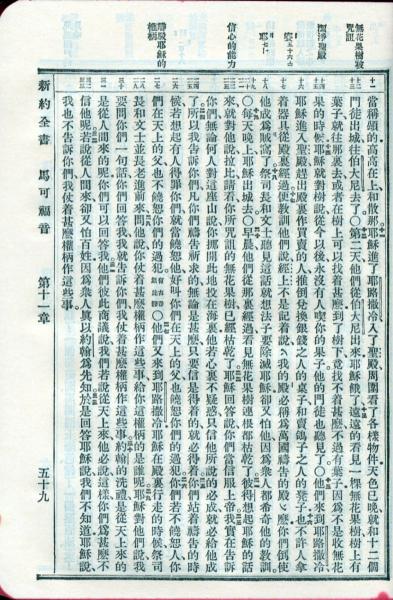 無花果樹被咒詛
潔淨聖殿
信心的能力
當稱頌的高高在上和散那耶穌進了耶路撒冷入了聖殿周圍看了各樣物件天色已晚就和十二個
門徒出城往伯大尼去了○第二天他們從伯大尼出來耶穌餓了遠遠的看見一棵無花果樹樹上有
葉子就往那裏去或者在樹上可以找着甚麼到了樹下竟找不着甚麼不過有葉子因爲不是收無花
果的時候耶穌就對樹說從今以後永沒有人喫你的果子他的門徒也聽見了○他們來到耶路撒冷
耶穌進入聖殿趕出殿裏作買賣的人推倒兌換銀錢之人的桌子和賣鴿子之人的凳子也不許人拿
着器具從殿裏經過便教訓他們說經上不是記着說我的殿必稱爲萬國禱告的殿麼你們倒使
他成爲賊窩了祭司長和文士聽見這話就想法子要除滅耶穌却又怕他因爲衆人都希奇他的教訓
○每天晚上耶穌出城去○早晨他們從那裏經過看見無花果樹連根都枯乾了彼得想起耶穌的話
來就對他說拉比請看你所咒詛的無花果樹已經枯乾了耶穌回答說你們當信服上帝我實在告訴
你們無論何人對這座山說你挪開此地投在海裏他若心裏不疑惑只信他所說的必成就必給他成
了所以我告訴你們凡你們禱告祈求的無論是甚麼只要信是得着的就必得着你們站着禱告的時
候若想起有人得罪你們就當饒恕他好叫你們在天上的父也饒恕你們的過犯你們若不饒恕人你
們在天上的父也不饒恕你們的過犯○他們又來到耶路撒冷耶穌在殿裏行走的時候祭司
長和文士並長老進前來問他說你仗着甚麼權柄作這些事給你這權柄的是誰呢耶穌對他們說我
要問你們一句話你們回答我我就告訴你們我仗着甚麼權柄作這些事約翰的洗禮是從天上來的
是從人間來的呢你們可以回答我他們彼此商議說我們若說從天上來他必說這樣你們爲甚麼不
信他呢若說從人間來却又怕百姓因爲衆人眞以約翰爲先知於是回答耶穌說我們不知道耶穌說
我也不告訴你們我仗着甚麼權柄作這些事
新約全書 馬可福音 第十一章 五十九